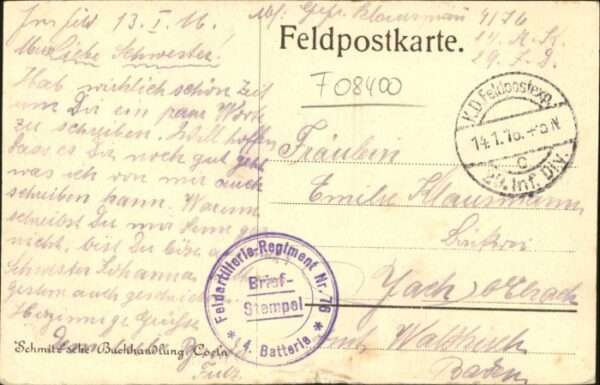 Im Feld 13. I. 16.
Meine Liebe Schwester!
Hab wirklich schön Zeit
um Dir ein paar Worte
zu schreiben. Will hoffen
dass es Dir noch gut geht
was ich von mir auch
schreiben kann. Warum
schreibst Du mir denn gar
nicht, bist Du böse
Schwester Johanna
gestern auch geschrieben
Herzinnige Grüsse
Dein lieb
Fritz.
Schmitz'sche Buchhandlung, Coeln
Abs. Gefr. Klausmann 4/76
14. A. K.
29. I. D.
Feldpostkarte.
F 08400
K.D. Feldpostexp.
14.1.16.
c
29. Inf. Div.
Fräulein
Emilie Klausmann
Yach b/Elzach
Amt Waldkirch
Baden
Feldartillerie-Regiment Nr. 76
Brief-
Stempel
* 4. Batterie *